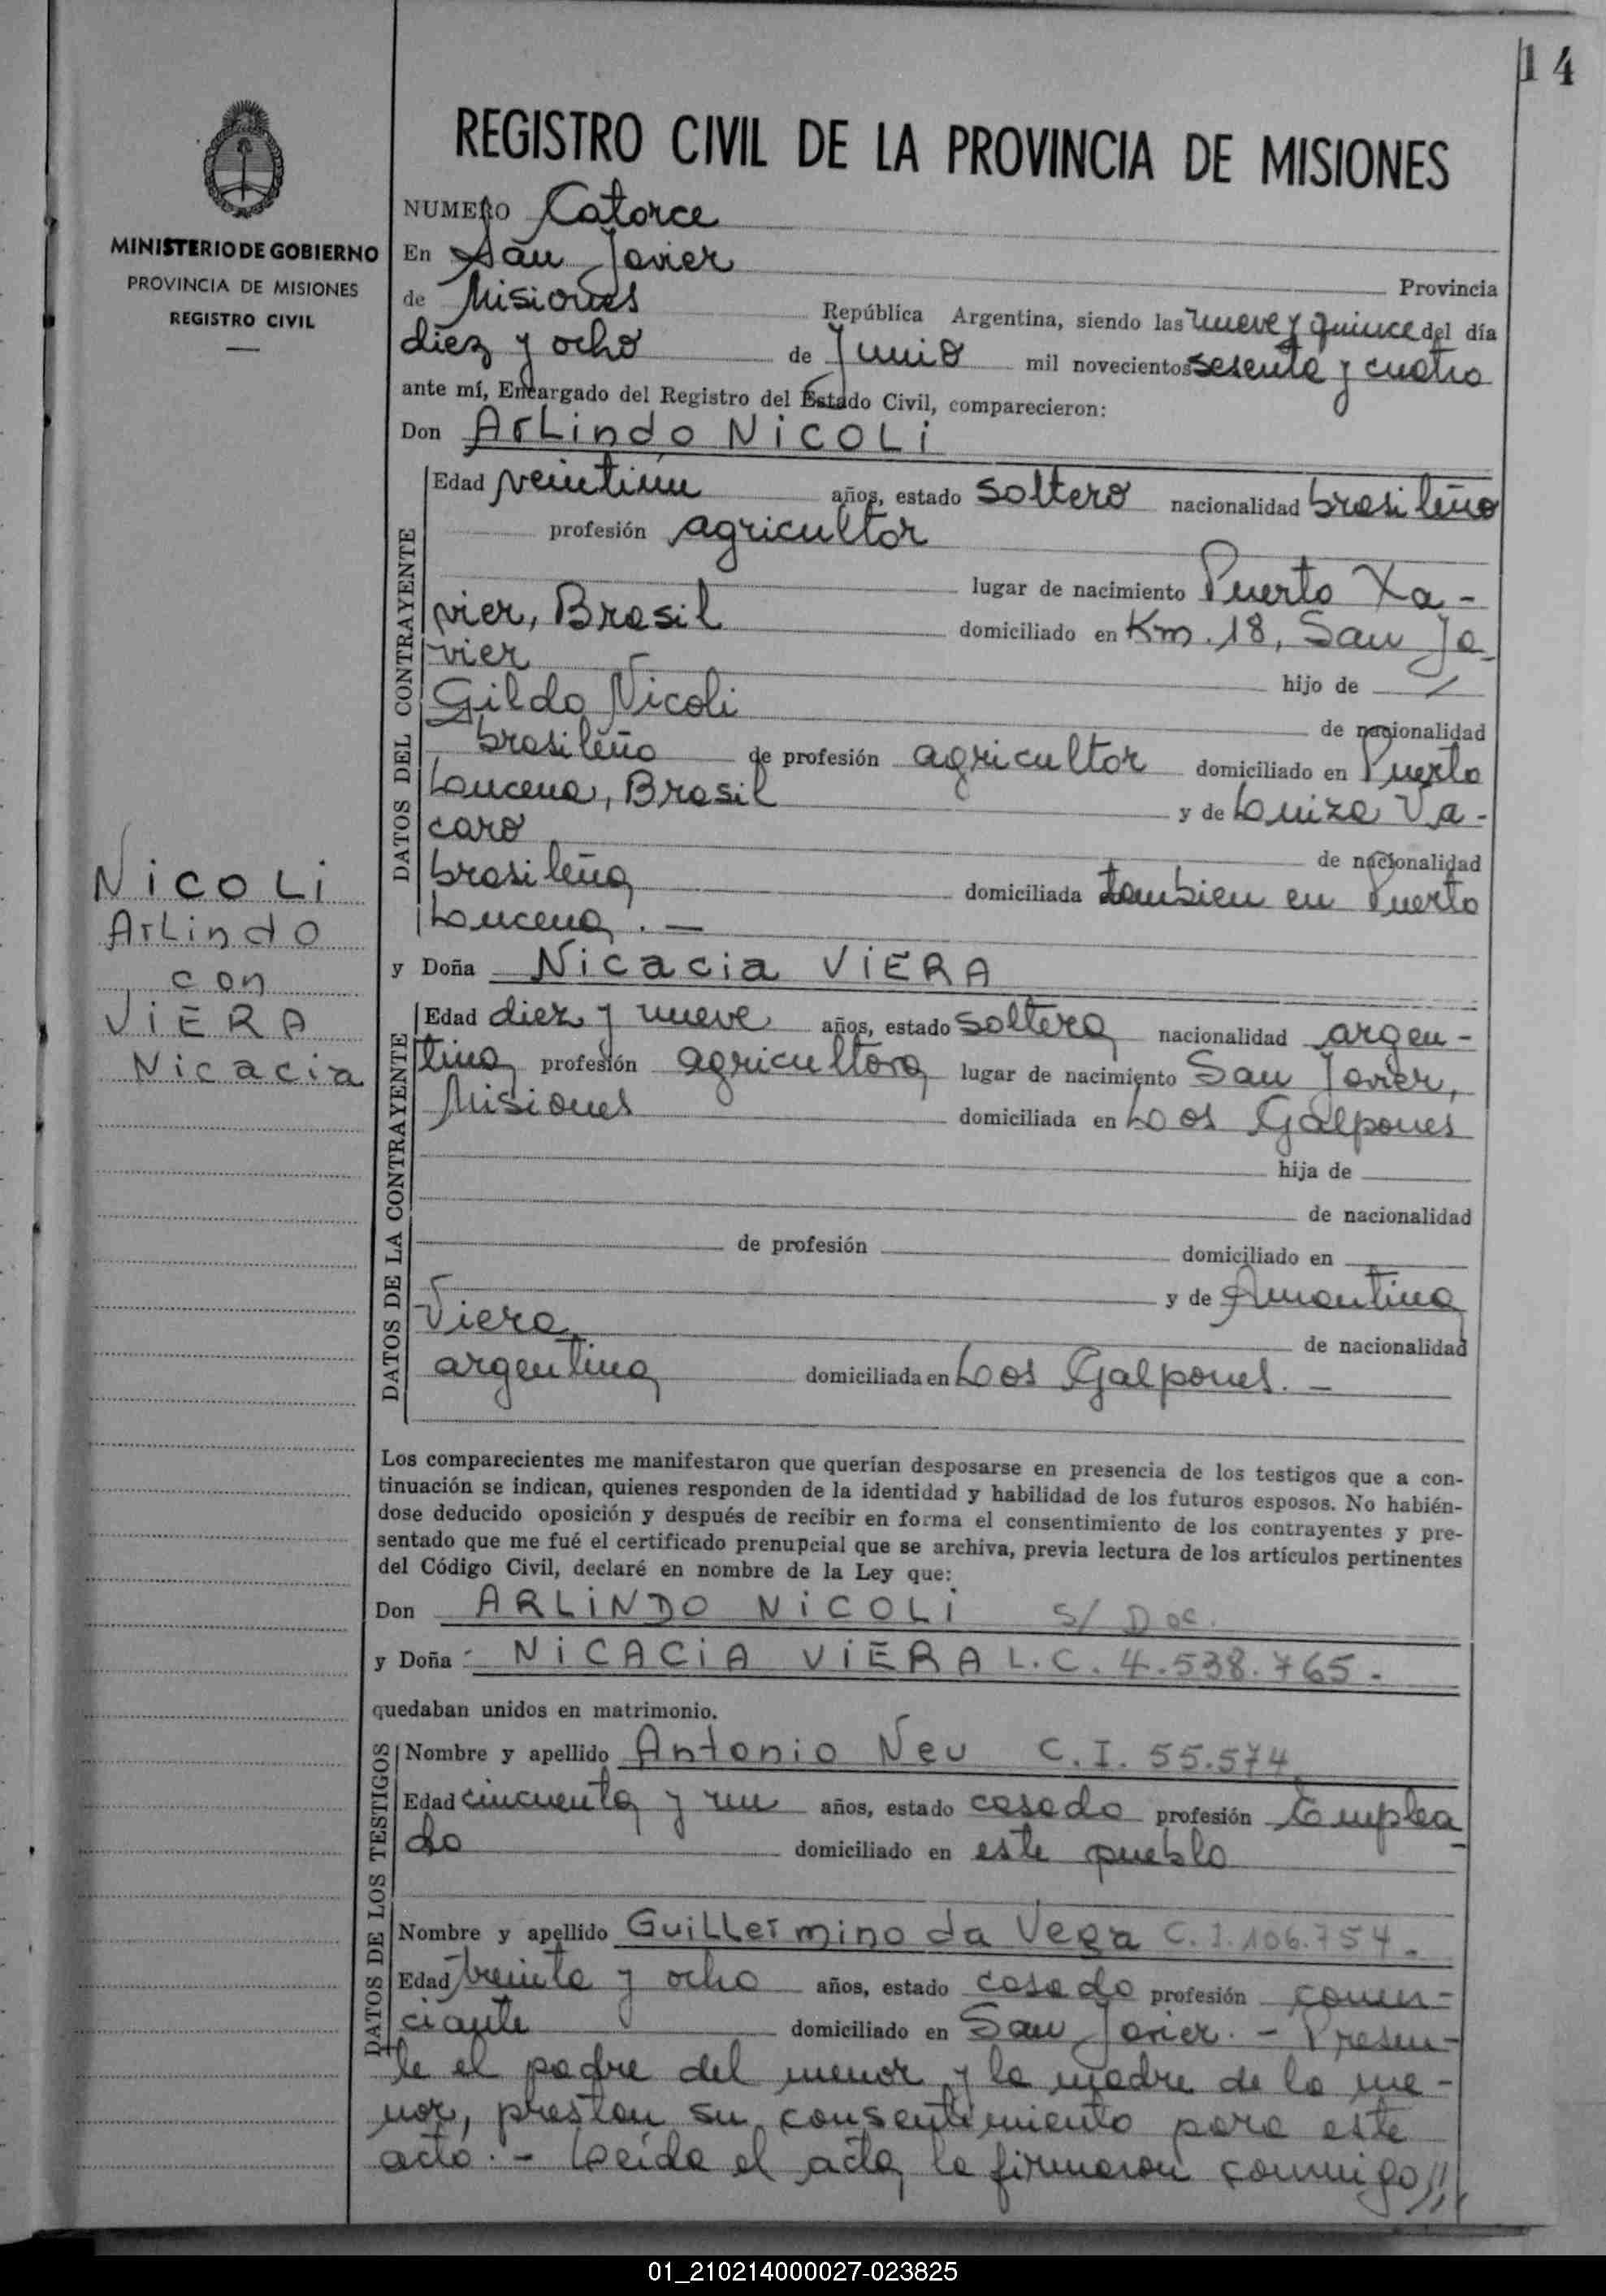 14
REGISTRO CIVIL DE LA PROVINCIA DE MISIONES
MINISTERIO DE GOBIERNO
PROVINCIA DE MISIONES
REGISTRO CIVIL
NICOLI
Arlindo
con
VIERA
Nicacia
NUMERO Catorce
En San Javier Provincia
de Misiones República Argentina, siendo las nueve y quince del día
diez y ocho de Junio mil novecientos sesenta y cuatro
ante mí, Encargado del Registro del Estado Civil, comparecieron:
Don Arlindo NICOLI
DATOS DEL CONTRAYENTE
Edad veintiún años, estado soltero nacionalidad brasileño
profesión agricultor
lugar de nacimiento Puerto Xa-
vier, Brasil domiciliado en Km. 18, San Ja-
vier hijo de
Gildo Nicoli de nacionalidad
brasileño de profesión agricultor domiciliado en Puerto
Loucena, Brasil y de Luiza Va-
caro de nacionalidad
brasileña domiciliada tambien en Puerto
Loucena. —
y Doña Nicacia VIERA
DATOS DE LA CONTRAYENTE
Edad diez y nueve años, estado soltera nacionalidad argen-
tina profesión agricultora lugar de nacimiento San Javier,
Misiones domiciliada en Los Galpones
hija de
de nacionalidad
de profesión domiciliado en
y de Amantina
Viera de nacionalidad
argentina domiciliada en Los Galpones. —
Los comparecientes me manifestaron que querían desposarse en presencia de los testigos que a con-
tinuación se indican, quienes responden de la identidad y habilidad de los futuros esposos. No habién-
dose deducido oposición y después de recibir en forma el consentimiento de los contrayentes y pre-
sentado que me fué el certificado prenupcial que se archiva, previa lectura de los artículos pertinentes
del Código Civil, declaré en nombre de la Ley que:
Don ARLINDO NICOLI S/ Doc.
y Doña NICACIA VIERA L.C. 4.538.765.-
quedaban unidos en matrimonio.
DATOS DE LOS TESTIGOS
Nombre y apellido Antonio Neu C.I. 55.574
Edad cincuenta y un años, estado casado profesión Emplea-
do domiciliado en este pueblo
Nombre y apellido Guillermino da Vega C.I. 106.754.-
Edad treinta y ocho años, estado casado profesión comer-
ciante domiciliado en San Javier. - Presen-
te el padre del menor y la madre de la me-
nor, prestan su consentimiento para este
acto. - Leída el acta, la firmaron conmigo//
01_210214000027-023825